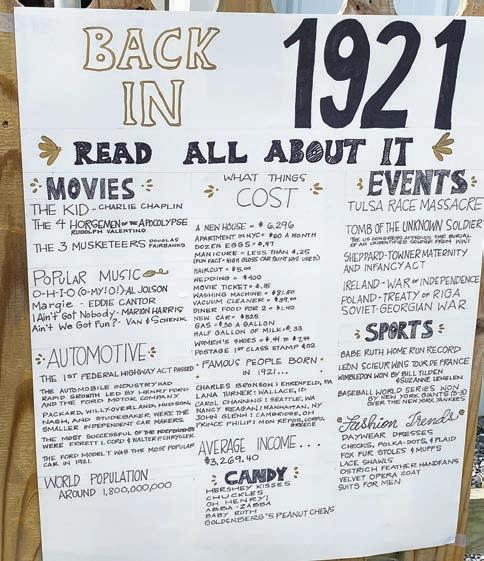 BACK
IN
1921
READ ALL ABOUT IT
MOVIES
THE KID - CHARLIE CHAPLIN
THE 4 HORSEMEN OF THE APOCOLYPSE
RUDOLPH VALENTINO
THE 3 MUSKETEERS DOUGLAS FAIRBANKS
POPULAR MUSIC
O-H-I-O (O-MY!O!) AL JOLSON
Margie - EDDIE CANTOR
I Ain't Got Nobody - MARION HARRIS
Ain't We Got Fun? - VAN & SCHENCK
AUTOMOTIVE
THE 1ST FEDERAL HIGHWAY ACT PASSED
THE AUTOMOBILE INDUSTRY HAD
RAPID GROWTH LED BY HENRY FORD
AND THE FORD MOTOR COMPANY
PACKARD, WILLY-OVERLAND, HUDSON,
NASH, AND STUDEBAKER WERE THE
SMALLER INDEPENDENT CAR MAKERS.
THE MOST SUCCESSFUL OF THE INDEPENDENTS
WERE EVERETT L. CORD & WALTER P. CHRYSLER
THE FORD MODEL T WAS THE MOST POPULAR
CAR IN 1921.
WORLD POPULATION
AROUND 1,800,000,000
WHAT THINGS
COST
A NEW HOUSE = $6,296
APARTMENT IN NYC = $60 A MONTH
DOZEN EGGS = $.47
MANICURE = LESS THAN $.25
(FUN FACT - HIGH GLOSS CAR PAINT WAS USED)
HAIRCUT = $5.00
WEDDING = $400
MOVIE TICKET = $.15
WASHING MACHINE = $81.50
VACUUM CLEANER = $39.00
DINNER FOOD FOR 2 = $1.40
NEW CAR = $325
GAS = $.30 A GALLON
HALF GALLON OF MILK = $.33
WOMEN'S SHOES =
POSTAGE 1ST CLASS STAMP $.02
FAMOUS PEOPLE BORN
IN 1921...
CHARLES BRONSON: EHRENFELD, PA
LANA TURNER: WALLACE, ID
CAROL CHANNING: SEATTLE, WA
NANCY REAGAN: MANHATTAN, NY
JOHN GLENN: CAMBRIDGE, OH
PRINCE PHILIP: MON REPOS, CORFU,
GREECE
AVERAGE INCOME...
$3,269.40
CANDY
HERSHEY KISSES
CHUCKLES
OH HENRY!
ABBA-ZABBA
BABY RUTH
GOLDENBERG'S PEANUT CHEWS
EVENTS
TULSA RACE MASSACRE
TOMB OF THE UNKNOWN SOLDIER
THE US CONGRESS APPROVES THE BURIAL
OF AN UNIDENTIFIED SOLDIER FROM WWI
SHEPPARD-TOWNER MATERNITY
AND INFANCY ACT
IRELAND - WAR OF INDEPENDENCE
POLAND - TREATY OF RIGA
SOVIET-GEORGIAN WAR
SPORTS
BABE RUTH HOME RUN RECORD
LEON SCIEUR WINS TOUR DE FRANCE
WIMBLEDON WON BY BILL TILDEN
& SUZANNE LENGLEN
BASEBALL WORLD SERIES WON
BY NEW YORK GIANTS (5-3)
OVER THE NEW YORK YANKEES
Fashion Trends
DAYWEAR DRESSES
CHECKS, POLKA-DOTS, & PLAID
FOX FUR STOLES & MUFFS
LACE SHAWLS
OSTRICH FEATHER HANDFANS
VELVET OPERA COAT
SUITS FOR MEN